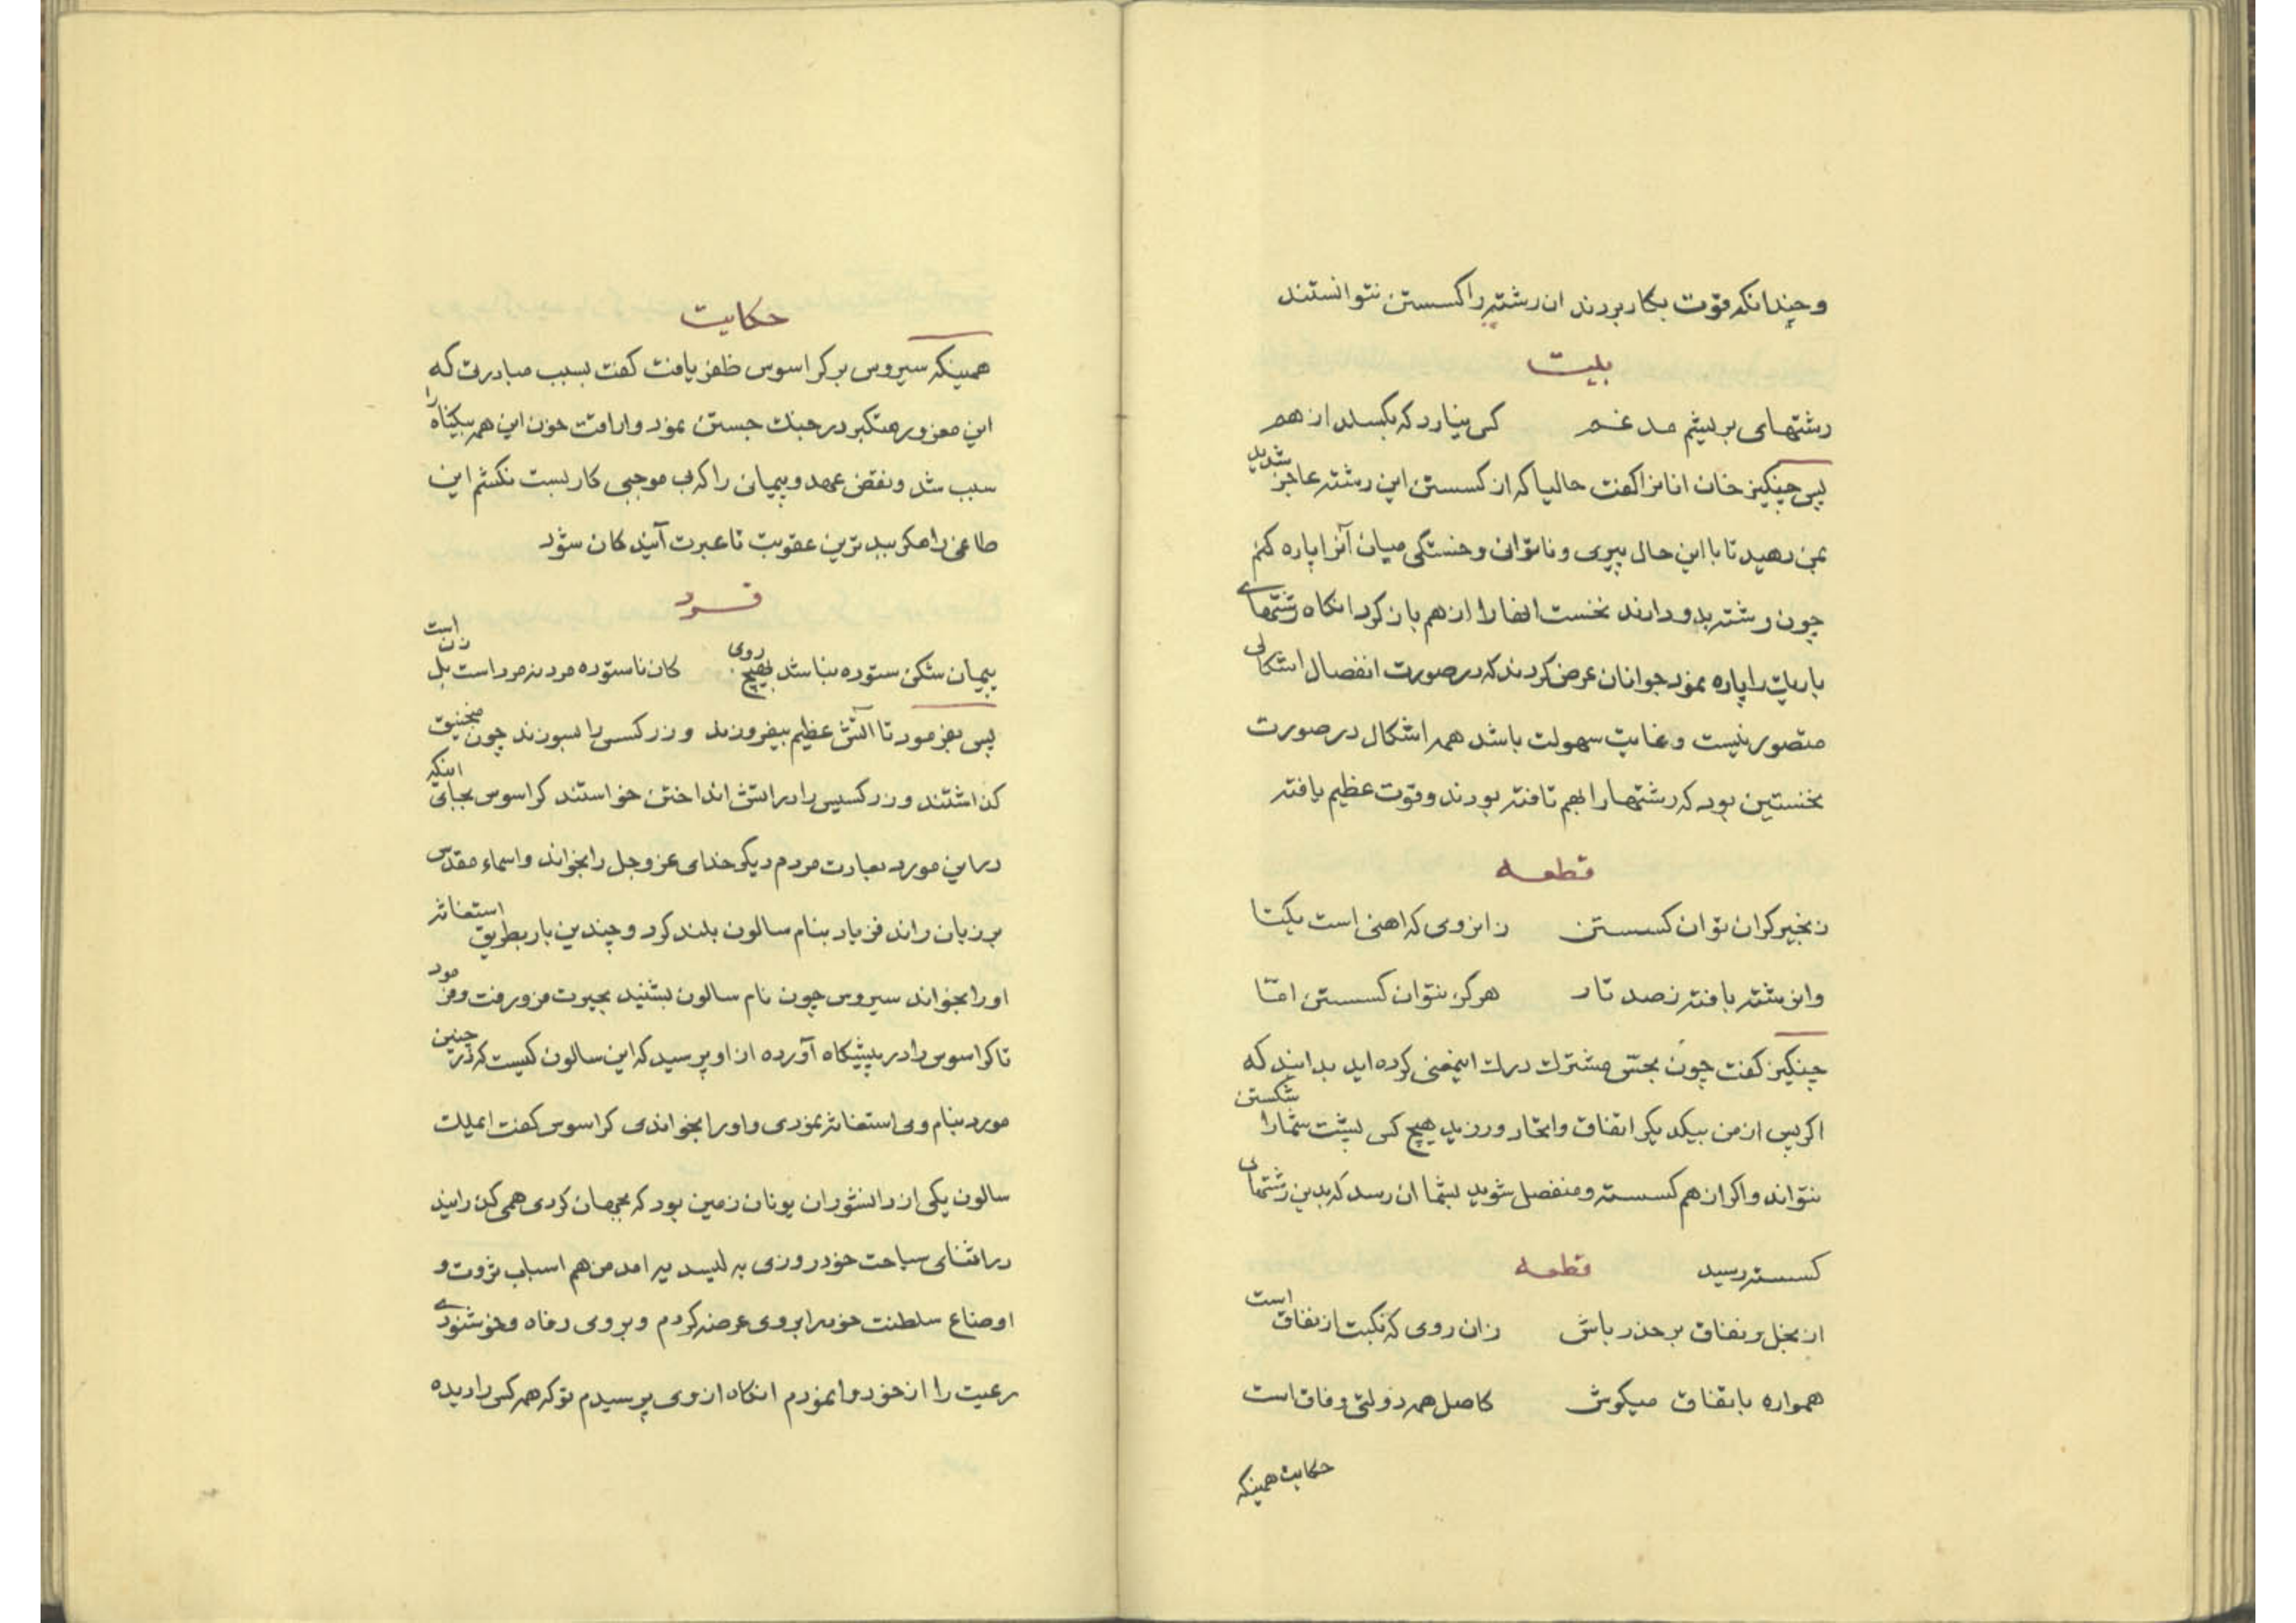 وچندانکه قوّت بکار بردند ان رشته را کسستن نتوانستند
بیت
رشتهای بریشم مدغم کی بیارد که بکسلد از هم
پس چنکیز خان انانرا کفت حالیا که از کسستن این رشته عاجز شدید
بمن دهید تا با این حال پیری و ناتوانی و خستکی میان آنرا پاره کنم
چون رشته بدو دادند نخست انها را از هم باز کرد انکاه رشتهای
باریک را پاره نمود جوانان عرض کردند که در صورت انفصال اشکالی
متصور نیست و غایت سهولت باشد همه اشکال در صورت
نخستین بود که رشتها را بهم تافته بودند و قوت عظیم یافته
قطعه
زنجیر کران توان کسستن زانروی که اهنی است یکتا
وان رشته بافته ز صد تار هرکز نتوان کسستن امّا
چنکیز کفت چون بحسّ مشترک درک اینمعنی کرده اید بدانید که
اکر پس از من بیکدیکر اتفاق و اتحاد ورزید هیچ کس پشت شما را شکستن
نتواند و اکر از هم کسسته و منفصل شوید بشما ان رسد که بدین رشتهای
کسسته رسید قطعه
از بخل و نفاق بر حذر باش زان روی که نکبت از نفاق است
همواره باتفاق میکوش کاصل همه دولتی وفاق است
حکایت همینکه
حکایت
همینکه سیروس بر کراسوس ظفر یافت کفت بسبب مبادرت که
این مغرور متکبر در جنک جستن نمود و اراقت خون این همه بیکناه را
سبب شد و نقض عهد و پیمان را که بی موجبی کار بست نکشم این
طاغی را مکر ببدترین عقوبت تا عبرت آیندکان شود
فرد
پیمان شکن ستوده نباشد بهیچ روی کان ناستوده مرد نه مرد است بل زن است
پس بفرمود تا اتش عظیم بیفروزند و زرکسی را بسوزند چون منجنیق
کذاشتند و زرکسیس را در اتش انداختن خواستند کراسوس بجای اینکه
در این مورد بعبارت مردم دیکر خدای عز و جل را بخواند و اسماء مقدس
بر زبان راند فریاد بنام سالون بلند کرد و چندین بار بطریق استغاثه
او را بخواند سیروس چون نام سالون بشنید بحیرت فرو رفت و فرمود
تا کراسوس را در پیشکاه آورده از او پرسید که این سالون کیست که در چنین
مورد بنام وی استغاثه نمودی و او را بخواندی کراسوس کفت ایملک
سالون یکی از دانشوران یونان زمین بود که بجهان کردی همی کذرانید
در اثنای سیاحت خود روزی به لیدیه در امد من هم اسباب ثروت و
اوضاع سلطنت خود را بروی عرضه کردم و بروی رفاه و خوشنودی
رعیت را از خود وانمودم انکاه از وی پرسیدم تو که همه کس را دیده